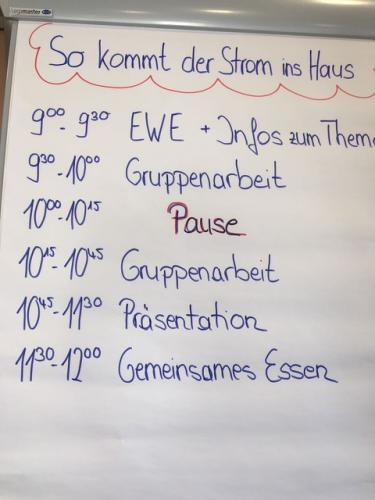 legamaster
So kommt der Strom ins Haus
9⁰⁰ - 9³⁰ EWE + Infos zum Them
9³⁰ - 10⁰⁰ Gruppenarbeit
10⁰⁰ - 10¹⁵ Pause
10¹⁵ - 10⁴⁵ Gruppenarbeit
10⁴⁵ - 11³⁰ Präsentation
11³⁰ - 12⁰⁰ Gemeinsames Essen